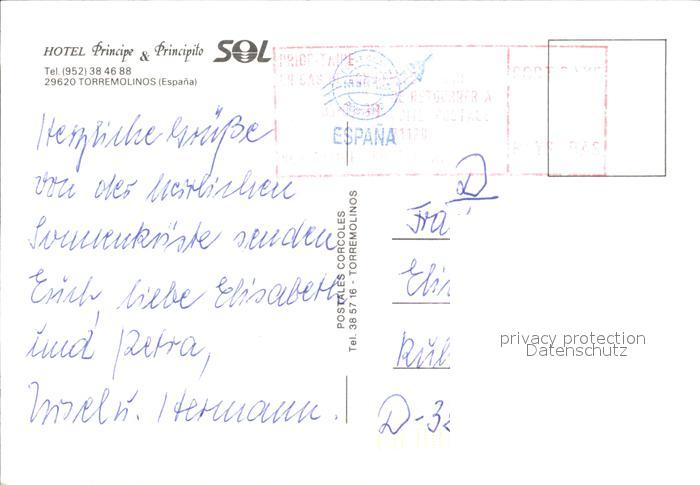 HOTEL Principe & Principito SOL
Tel. (952) 38 46 88
29620 TORREMOLINOS (España)
ESPAÑA
Herzliche Grüße
von der herrlichen
Sonnenküste senden
Euch, liebe Elisabeth
und Petra,
u. Hermann.
POSTALES CORCOLES
Tel. 38 57 16 - TORREMOLINOS
D
Fra
Elis
D-3
privacy protection
Datenschutz